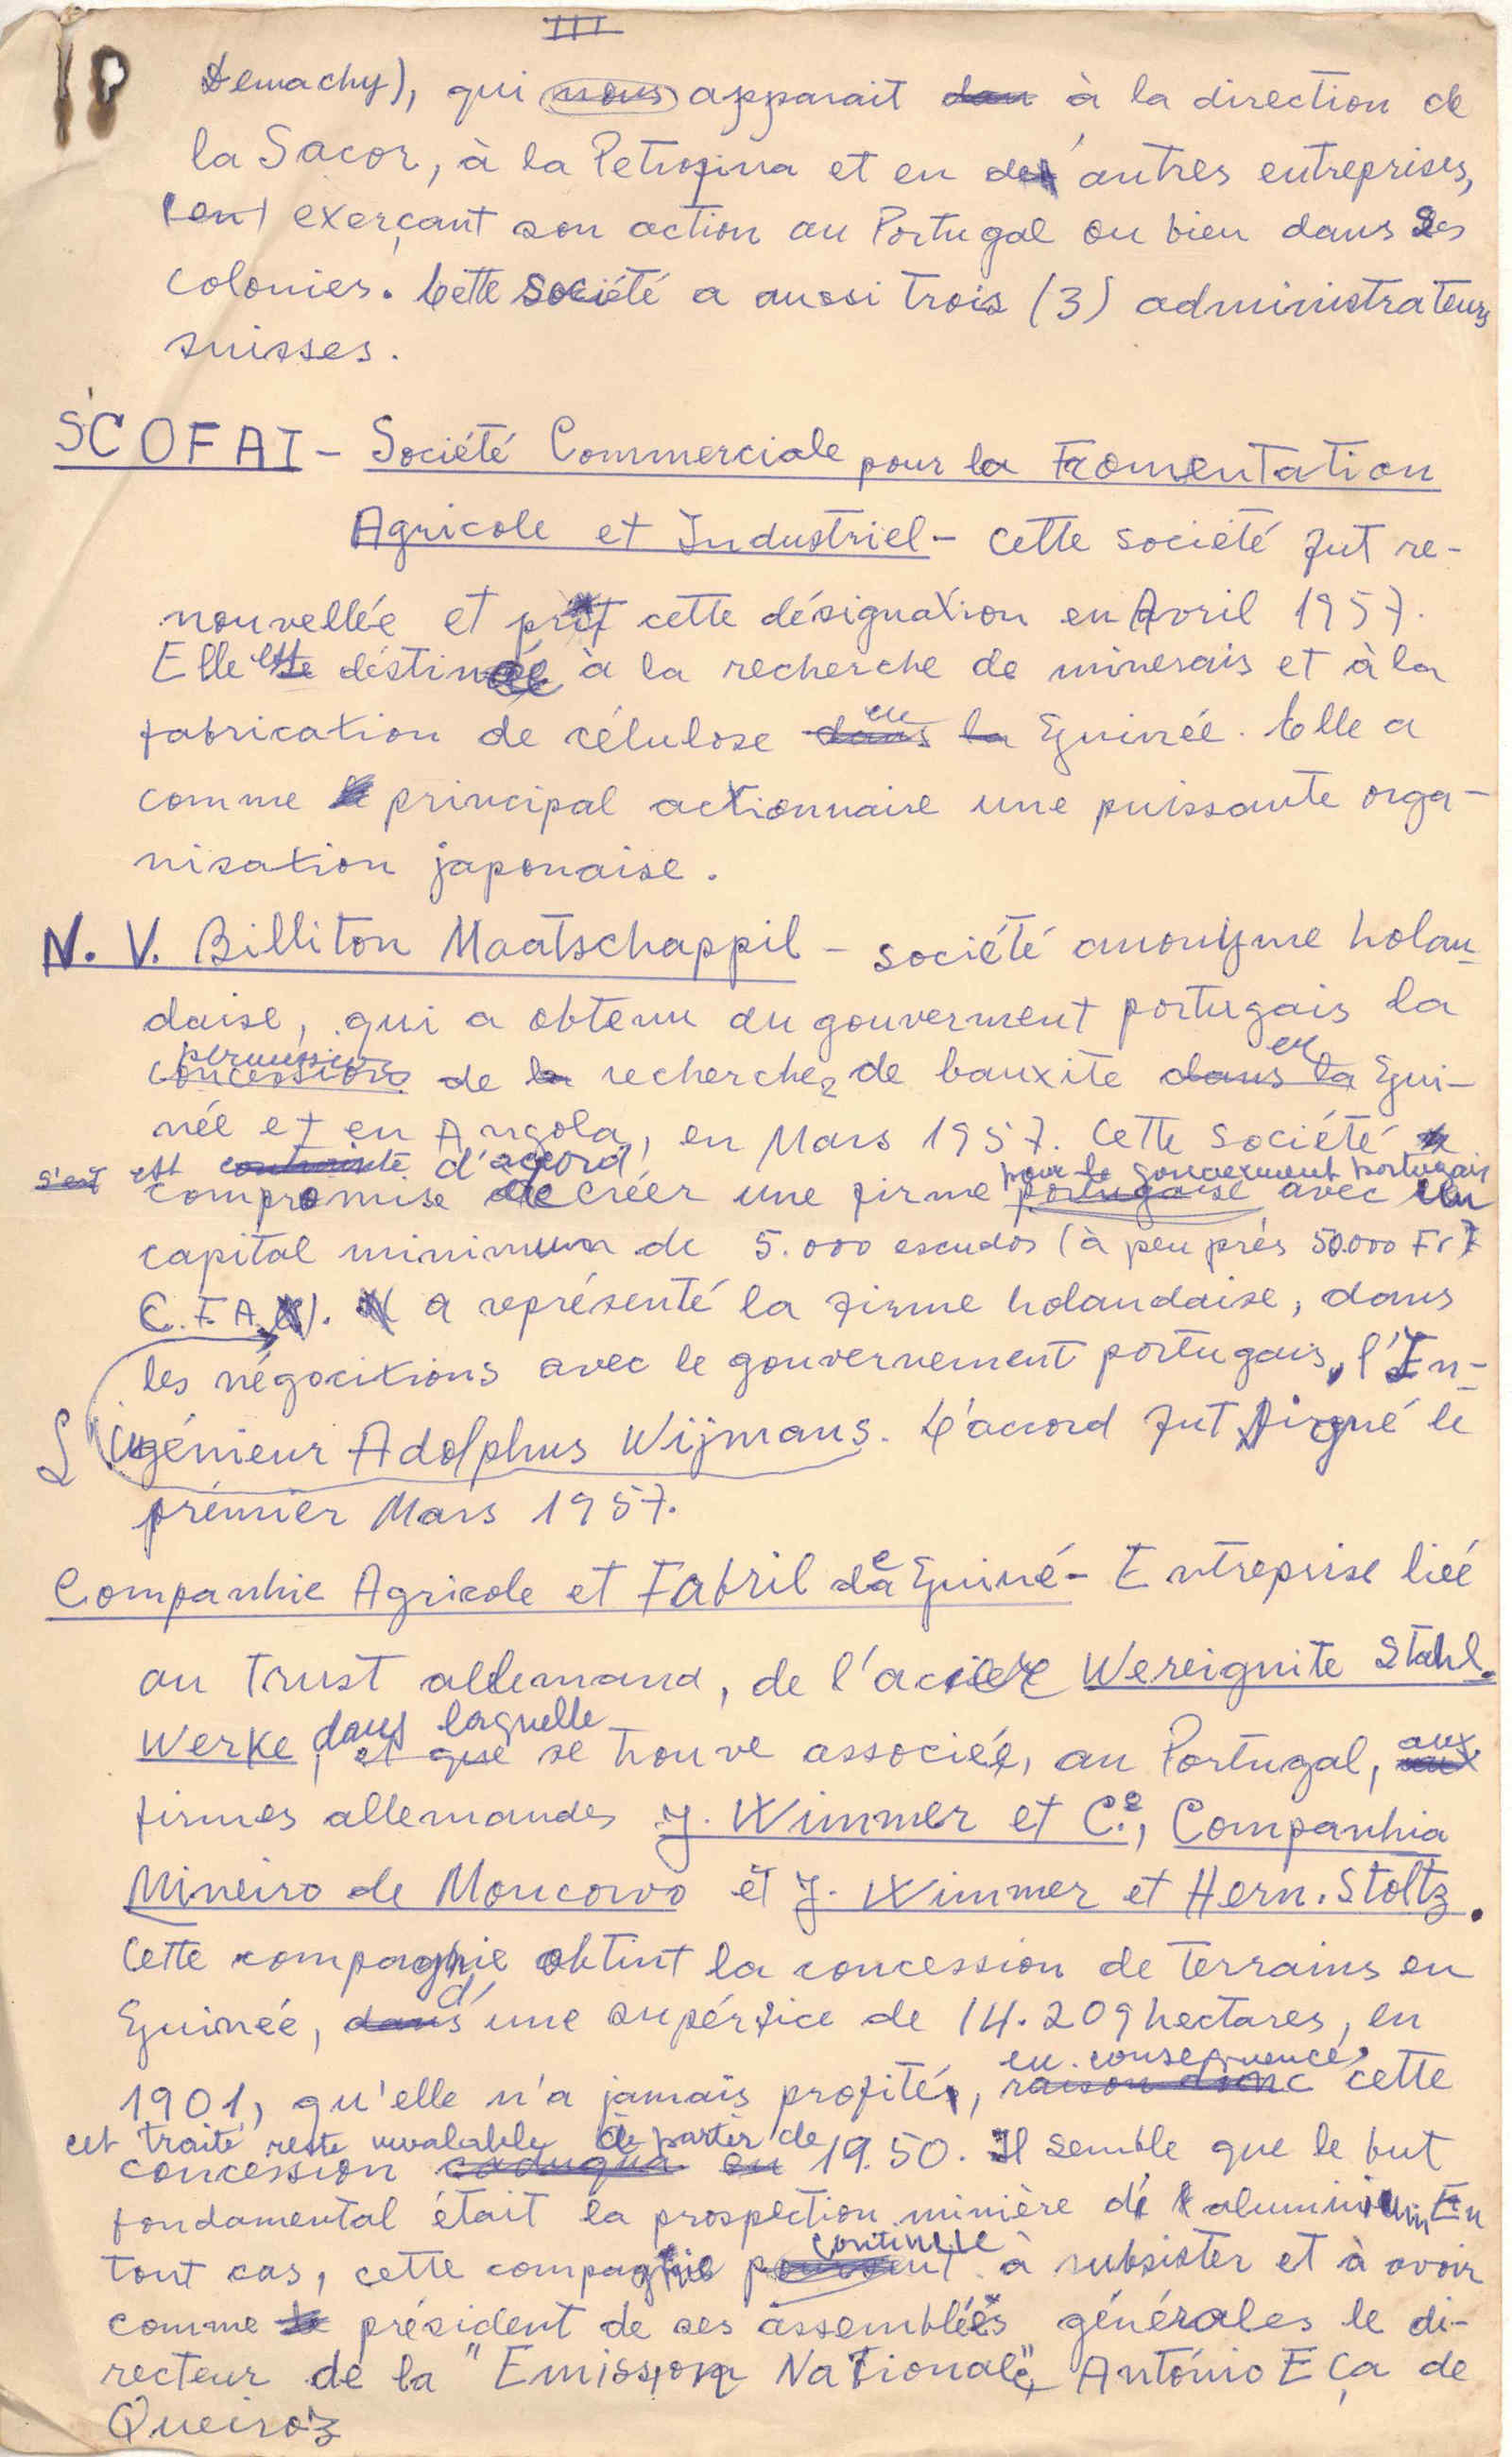 III
Demachy), qui nous apparait dan à la direction de
la Sacor, à la Petrofina et en des autres entreprises,
(en) exerçant son action au Portugal ou bien dans ses
colonies. Cette société a aussi trois (3) administrateurs
suisses.
SCOFAI - Société Commerciale pour la Fromentation
Agricole et Industriel - cette société fut re-
nouvellée et prit cette désignation en Avril 1957.
Elle este déstinée à la recherche de minerais et à la
en
fabrication de célulose dans la Guinée. Elle a
comme le principal actionnaire une puissante orga-
nisation japonaise.
N. V. Billiton Maatschappil - société anonyme holan-
daise, qui a obtenu du gouverment portugais la
permission en
concessions de la recherches de bauxite dans la Gui-
née et en Angola, en Mars 1957. Cette société
s'est est contrainte d'accord pour le gouvernement portugais
compromise de créer une firme portugaise avec un
capital minimum de 5.000 escudos (à peu prés 50.000 Fr
C.F.A.). a représenté la firme holandaise, dans
les négocitions avec le gouvernement portugais, l'In-
L'ingénieur Adolphus Wijmans. L'accord fut signé le
prémier Mars 1957.
e
Companhie Agricole et Fabril da Guiné - Entreprise liée
au Trust allemand, de l'acier Wereignite Stahl-
dans laquelle
Werke, et que se trouve associée, au Portugal, aux
firmes allemandes J. Wimmer et C.ª, Companhia
Mineiro de Moncorvo et J. Wimmer et Hern. Stoltz.
Cette compagnie obtint la concession de terrains en
d'
Guinée, dans une supérfice de 14.209 hectares, en
en consequence,
1901, qu'elle n'a jamais profité, raison donc cette
cet traité reste unvalable à partir de
concession caduqua en 1950. Il semble que le but
fondamental était la prospection minière de l'aluminium. En
continue
tout cas, cette compagnie à subsister et à avoir
comme le président de ses assemblées générales le di-
recteur de la "Emission Nationale", António Eça de
Queiroz